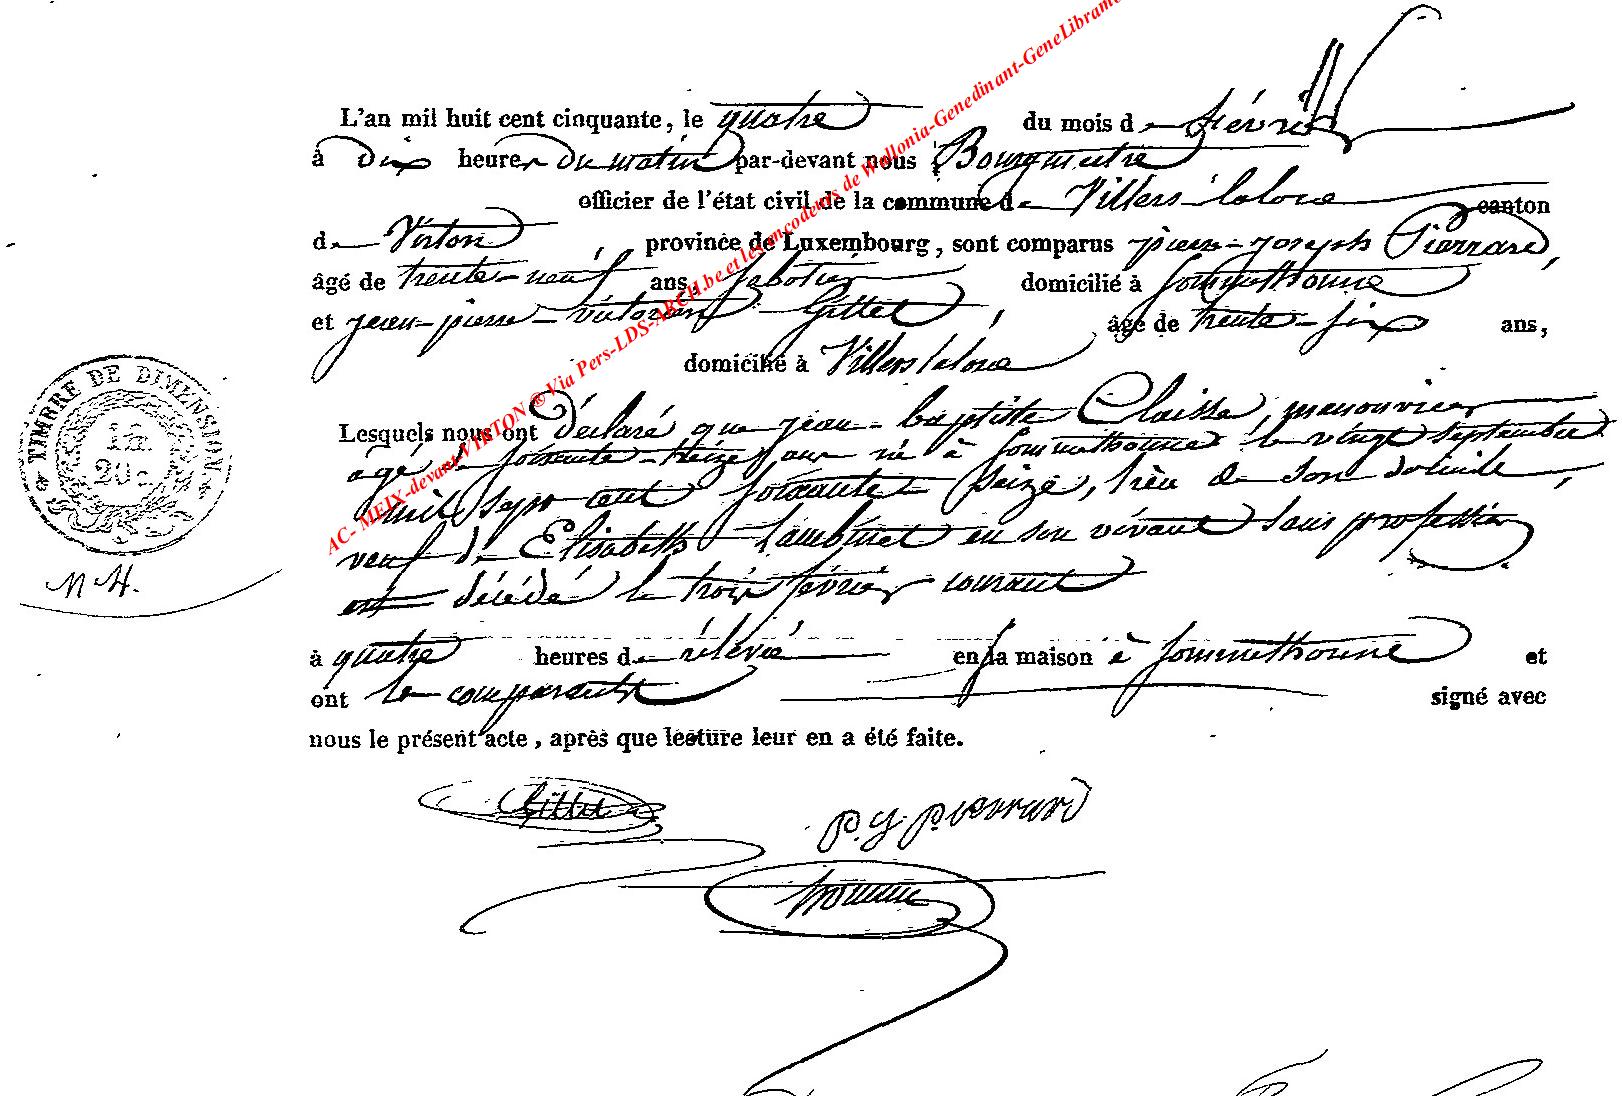 L'an mil huit cent cinquante, le quatre du mois de février
à dix heures du matin par-devant nous Bourgmestre
officier de l'état civil de la commune de Villers laloue canton
de Virton, province de Luxembourg, sont comparus pierre-joseph Pierrard,
âgé de trente-neuf ans, sabotier domicilié à Sommethonne
et jean-pierre-victorien Gillet, âgé de trente-six ans,
domicilié à Villers laloue
Lesquels nous ont déclaré que jean-baptiste Claisse, manouvrier
âgé de soixante-treize ans né à Sommethonne le vingt septembre
mil sept cent soixante seize, lieu de son domicile,
veuf de Elisabeth Lambinet en son vivant sans profession
est décédé le trois février courant
à quatre heures de rélevée en sa maison à Sommethonne et
ont les comparants signé avec
nous le présent acte, après que lecture leur en a été faite.
TIMBRE DE DIMENSION
20 c.
N H.
Gillet
P. J. Pierrard
AC- MEIX-devant-VIRTON ® Via Pers-LDS-ARCH.be et les encodeurs de Wallonia-Genedinant-GeneLibramo